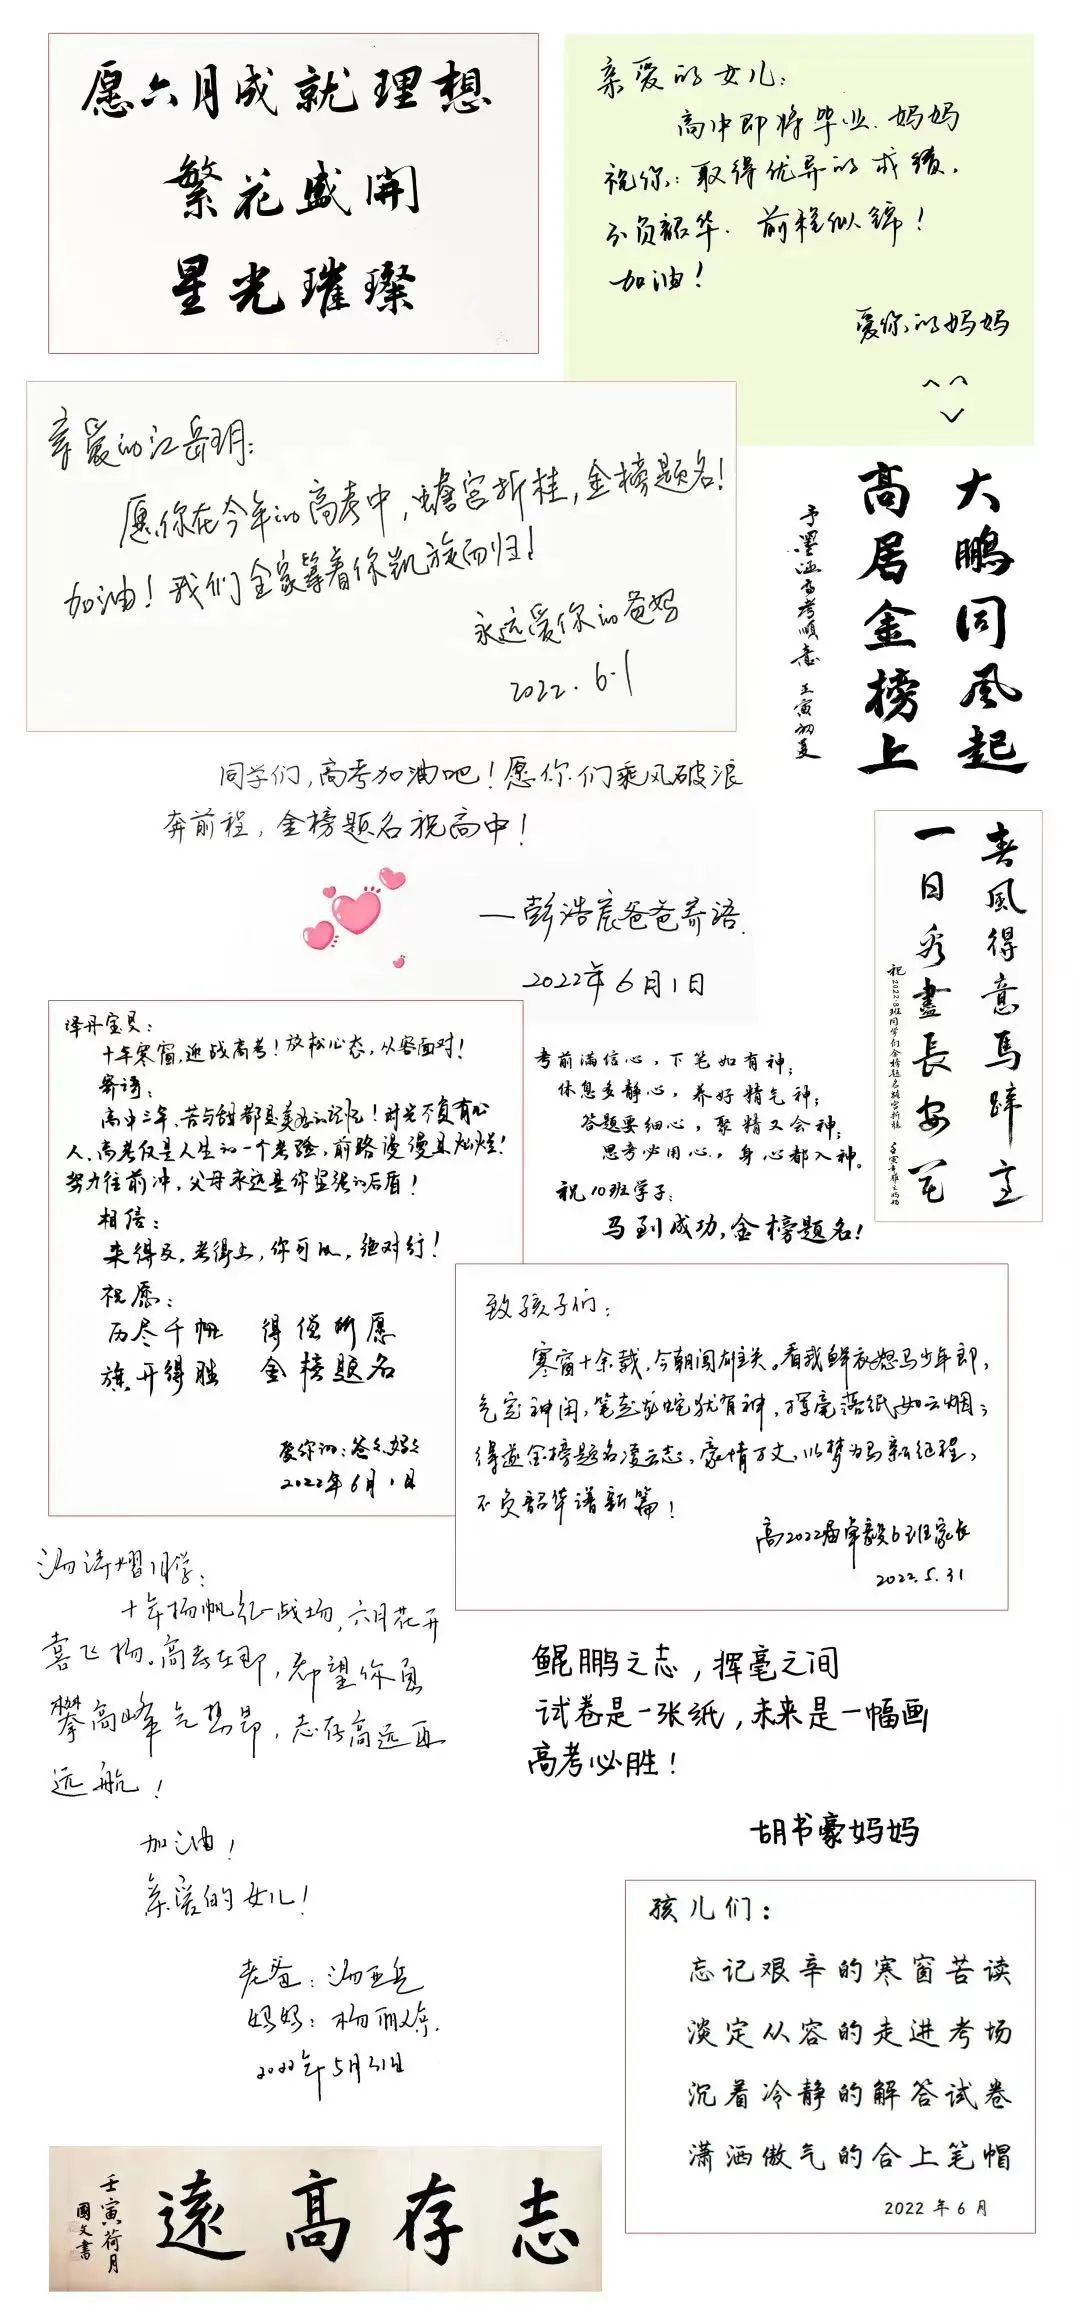 愿六月成就理想
繁花盛開
星光璀璨
亲爱的女儿：
高中即将毕业．妈妈
祝你：取得优异的成绩．
不负韶华．前程似锦！
加油！
爱你的妈妈
亲爱的江岳玥：
愿你在今年的高考中，蟾宫折桂，金榜题名！
加油！我们全家等着你凯旋而归！
永远爱你的爸妈
2022．6.1
大鹏同風起
高居金榜上
予墨涵高考順意 壬寅初夏
同学们，高考加油吧！愿你们乘风破浪
奔前程，金榜题名祝高中！
—彭浩宸爸爸寄语．
2022年6月1日
春風得意馬蹄疾
一日看盡長安花
祝2022.8班同学们金榜题名蟾宫折桂
泽丹宝贝：
十年寒窗，迎战高考！放松心态，从容面对！
寄语：
高中三年，苦与甜都是美好的记忆！时光不负有心
人，高考仅是人生的一个考验，前路漫漫且灿烂！
努力往前冲，父母永远是你坚强的后盾！
相信：
来得及，考得上，你可以，绝对行！
祝愿：
历尽千帆 得偿所愿
旗开得胜 金榜题名
爱你的：爸爸妈妈
2022年6月1日
考前满信心，下笔如有神；
休息多静心，养好精气神；
答题要细心，聚精又会神；
思考必用心，身心都入神。
祝10班学子：
马到成功，金榜题名！
致孩子们：
寒窗十余载，今朝闯雄关。看我鲜衣怒马少年郎，
气定神闲，笔走龙蛇犹有神，挥毫落纸如云烟；
得遂金榜题名凌云志，豪情万丈，以梦为马新征程，
不负韶华谱新篇！
高2022届卓毅6班家长
2022.5.31
汤涛熠同学：
十年扬帆征战场，六月花开
喜飞扬。高考在即，希望你勇
攀高峰气势昂，志存高远再
远航！
加油！
亲爱的女儿！
老爸：汤亚兵
妈妈：杨丽婷．
2022年5月31日
鲲鹏之志，挥毫之间
试卷是一张纸，未来是一幅画
高考必胜！
胡书豪妈妈
孩儿们：
忘记艰辛的寒窗苦读
淡定从容的走进考场
沉着冷静的解答试卷
潇洒傲气的合上笔帽
2022年6月
志存高遠
壬寅荷月
國文書